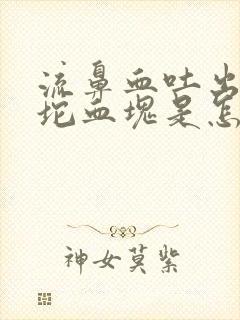 流鼻血吐出
坨血块是怎
神女莫紫